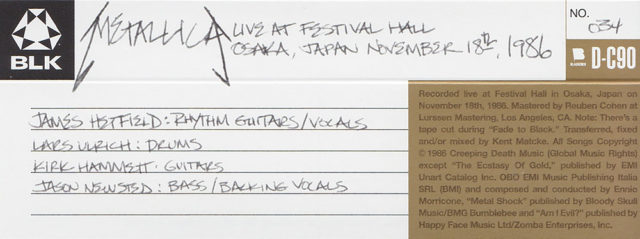 BLK
METALLICA
LIVE AT FESTIVAL HALL
OSAKA, JAPAN NOVEMBER 18th, 1986
NO.
034
B
D-C90
JAMES HETFIELD: RHYTHM GUITARS/VOCALS
LARS ULRICH: DRUMS
KIRK HAMMETT: GUITARS
JASON NEWSTED: BASS/BACKING VOCALS
Recorded live at Festival Hall in Osaka, Japan on
November 18th, 1986. Mastered by Reuben Cohen at
Lurssen Mastering, Los Angeles, CA. Note: There's a
tape cut during "Fade to Black." Transferred, fixed
and/or mixed by Kent Matcke. All Songs Copyright
© 1986 Creeping Death Music (Global Music Rights)
except "The Ecstasy Of Gold," published by EMI
Unart Catalog Inc. OBO EMI Music Publishing Italia
SRL (BMI) and composed and conducted by Ennio
Morricone, "Metal Shock" published by Bloody Skull
Music/BMG Bumblebee and "Am I Evil?" published by
Happy Face Music Ltd/Zomba Enterprises, Inc.